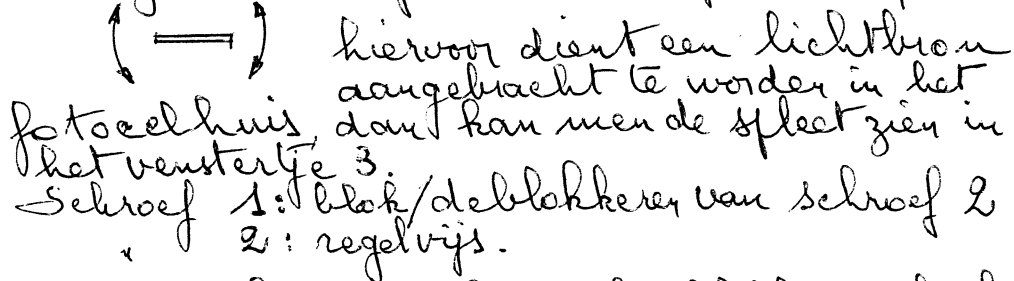 hiervoor dient een lichtbron
aangebracht te worden in het
fotocelhuis, dan kan men de spleet zien in
het venstertje 3.
Schroef 1: blok/deblokkeren van schroef 2
" 2: regelvijs.